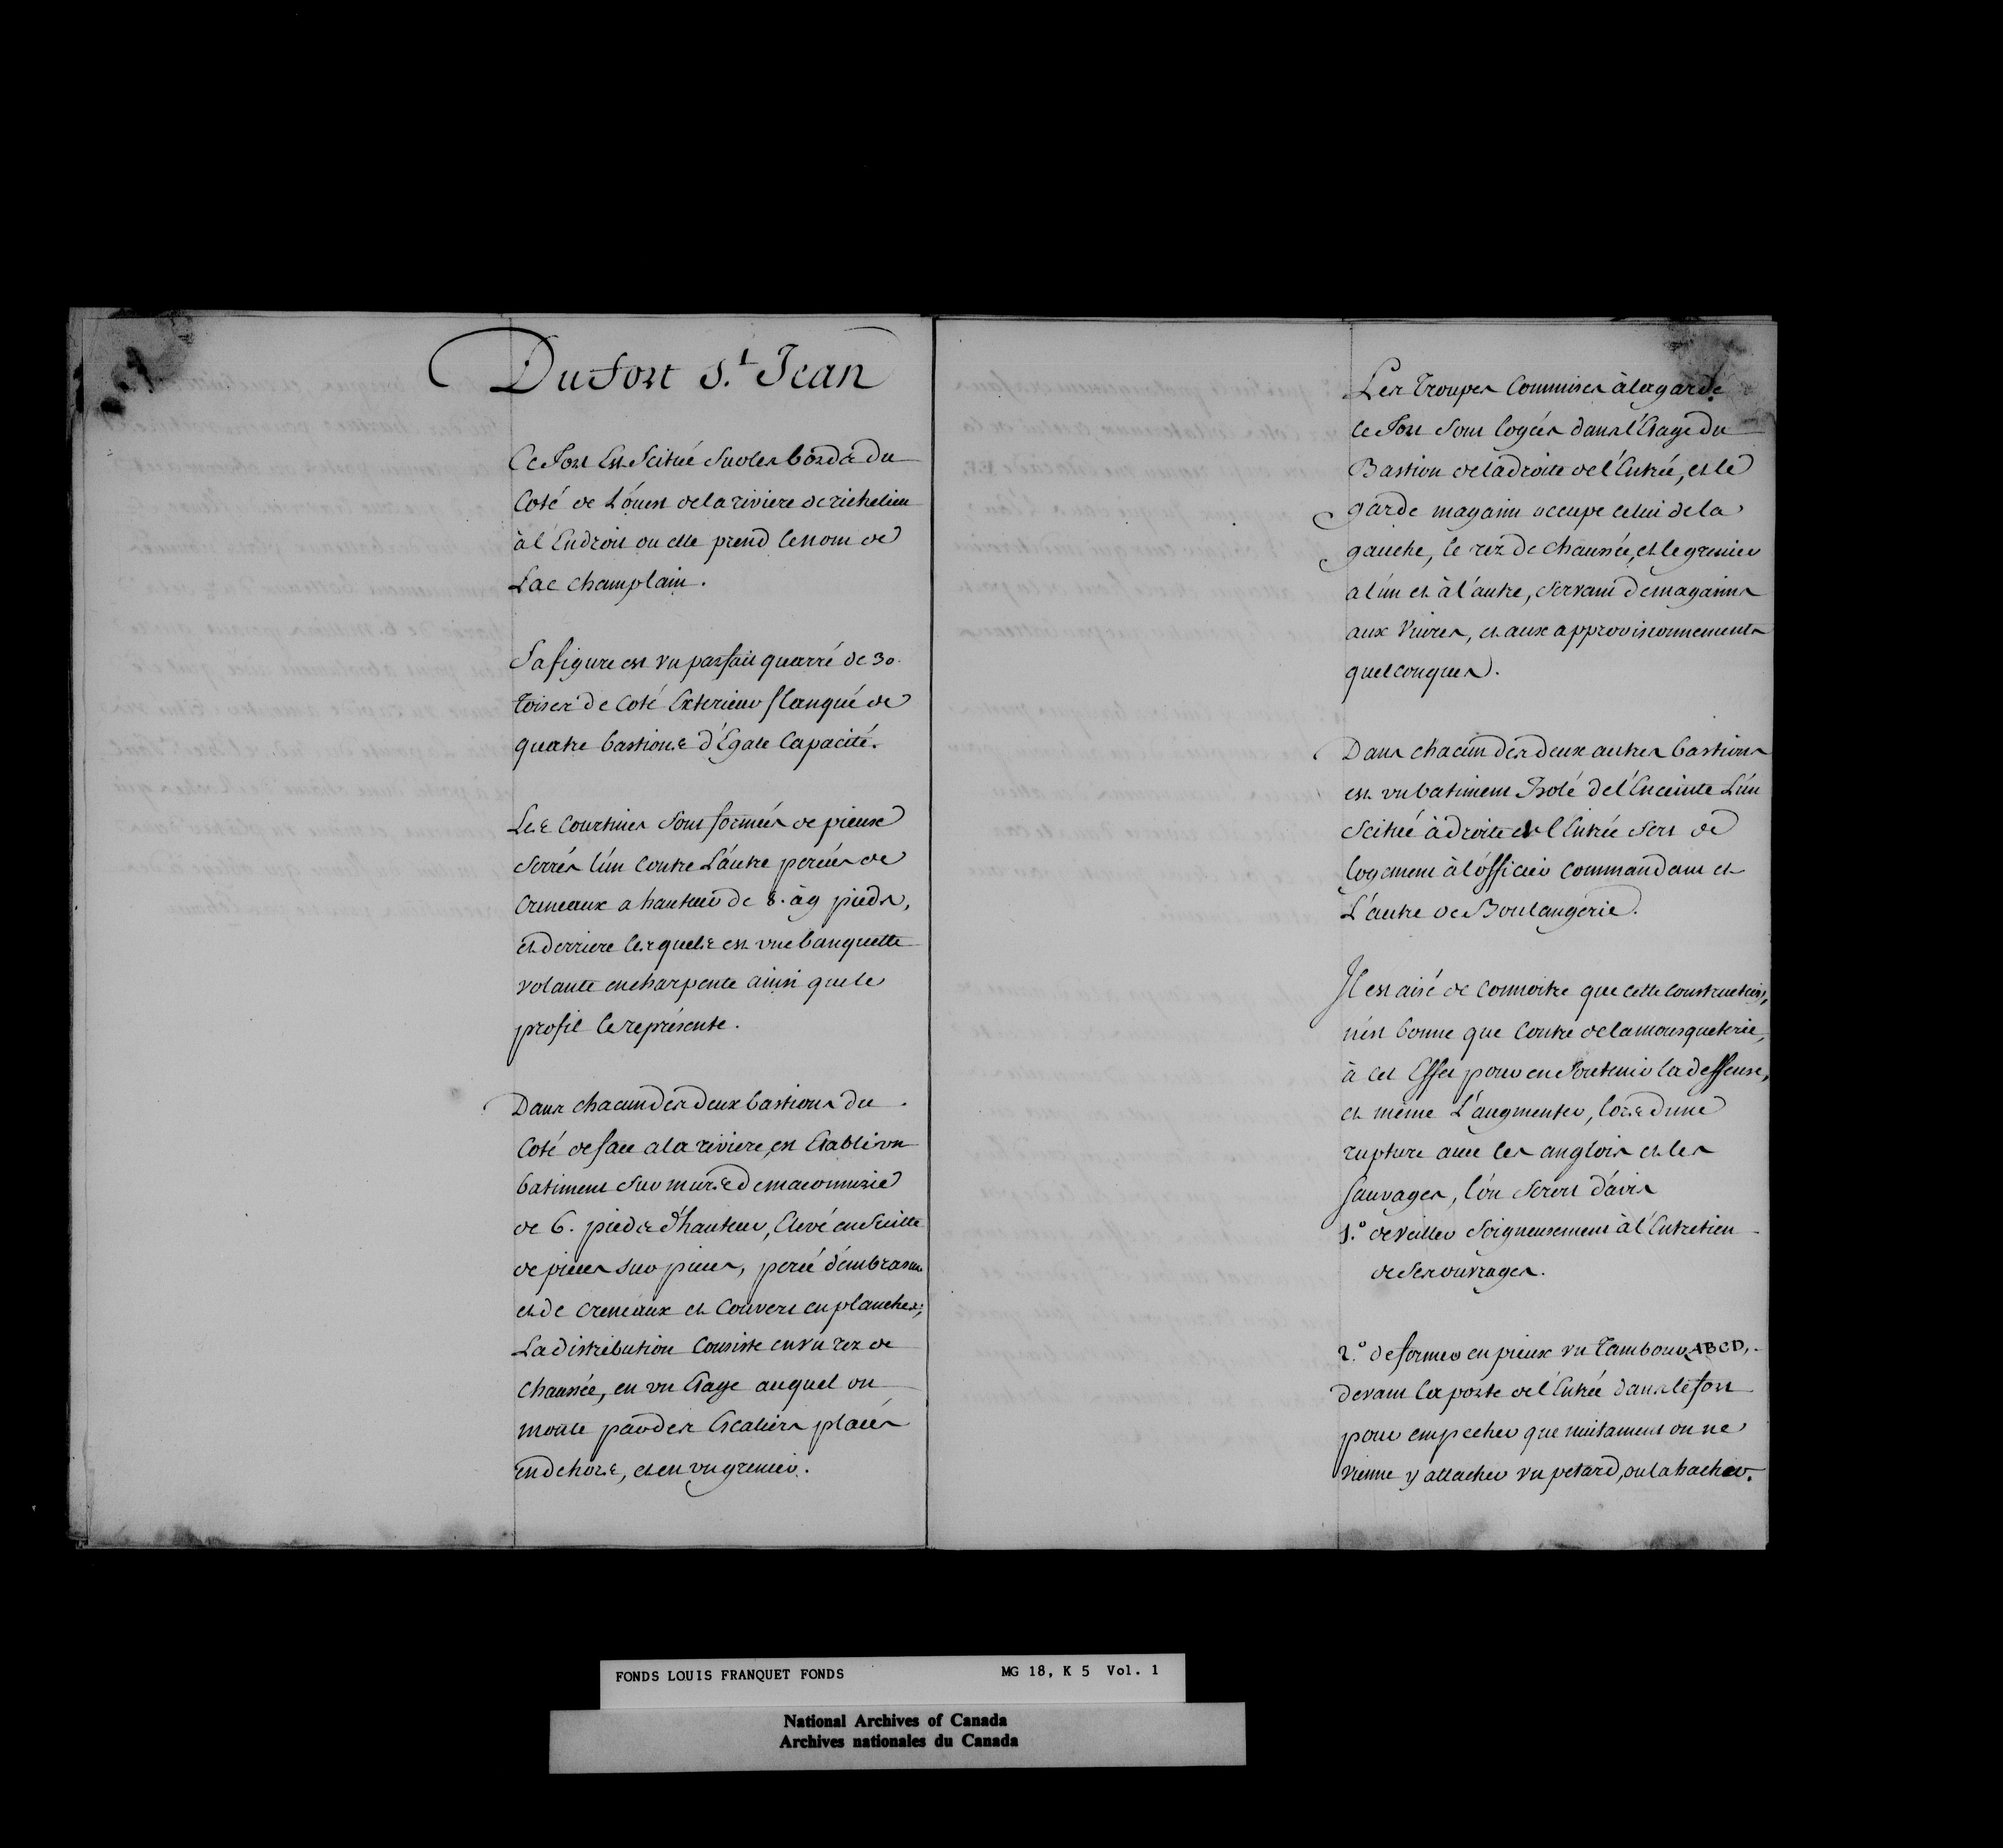 Du Fort S.t Jean
Ce Fort Est Scitué Sur les bords du
Coté de L'ouest de la riviere de richelieu
à l'Endroit ou elle prend le nom de
Lac champlain.
Sa figure est vn parfait quarré de 30.
Toises de Coté Exterieur flanqué de
quatre bastions d'Egale Capacité.
Les Courtines Sont formées de pieux
Serrés l'un Contre L'autre percées de
Creneaux a hauteur de 8. à 9 pieds,
et derriere lesquels est vne banquette
volante en charpente ainsi que le
profil le représente.
Dans chacun des deux bastions du
Coté de face a la riviere, est Etabli vn
batiment sur murs de maconnerie
de 6. pieds d'hauteur, Elevé en Suitte
de pieces sur pieces, percé d'embrasures
et de creneaux et Couvert en planches;
La distribution Consiste en vn rez de
Chaussée, en vn Etage auquel on
monte par des Escaliers placés
en dehors, et en vn grenier.
Les Troupes Commises à la garde
ce Fort Sont logées dans l'Etage du
Bastion de la droite de l'Entrée, et le
garde magasin occupe celui de la
gauche, le rez de chaussée, et le grenier
a l'un et à l'autre, Servant de magasins
aux Vivres, et aux approvisionnements
quelconques.
Dans chacun des deux autres bastions
est vn batiment Isolé de l'Enceinte L'un
Scitué à droite de l'Entrée Sert de
logement à l'officier Commandant et
L'autre de Boulangerie.
Il est aisé de Connoitre que cette Construction,
n'est bonne que Contre de la mousqueterie,
à cet Effet pour en Soutenir la deffense,
et même L'augmenter, lors d'une
rupture avec les anglois et les
Sauvages, l'on Seroit d'avis
1.° de veiller Soigneusement à l'Entretien
de Ses ouvrages.
2.° de former en pieux vn Tambour ABCD,
devant la porte de l'Entrée dans le fort
pour empecher que nuitament on ne
vienne y attacher vn petard, ou la hacher.
FONDS LOUIS FRANQUET FONDS MG 18, K 5 Vol. 1
National Archives of Canada
Archives nationales du Canada